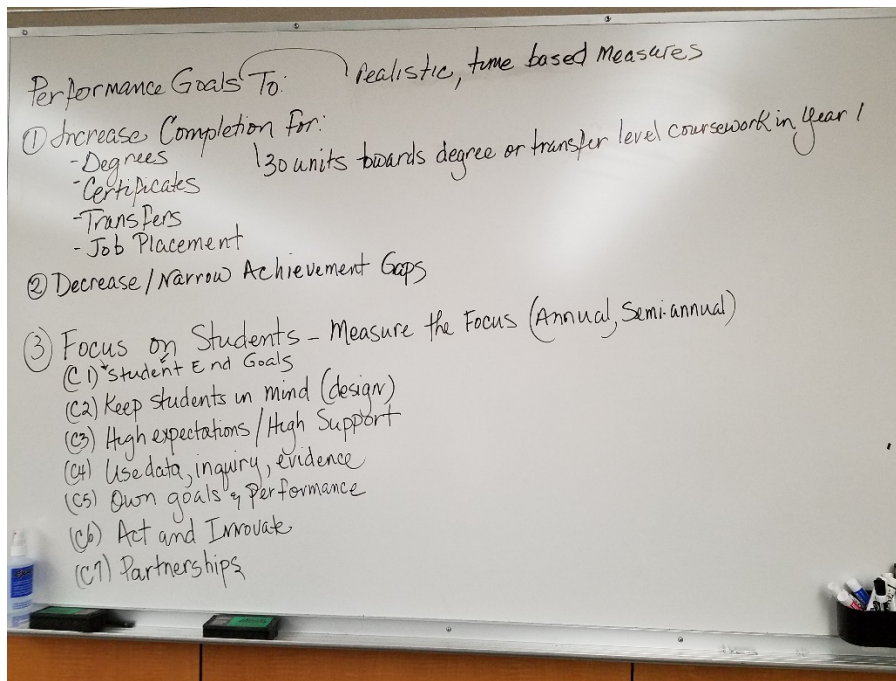 Performance Goals To: realistic, time based measures
① Increase Completion for:
- Degrees
30 units towards degree or transfer level coursework in year 1
- Certificates
- Transfers
- Job Placement
② Decrease / Narrow Achievement Gaps
③ Focus on Students - Measure the Focus (Annual, Semi-annual)
(C1) * Student End Goals
(C2) Keep students in mind (design)
(C3) High expectations / High Support
(C4) Use data, inquiry, evidence
(C5) Own goals & performance
(C6) Act and Innovate
(C7) Partnerships